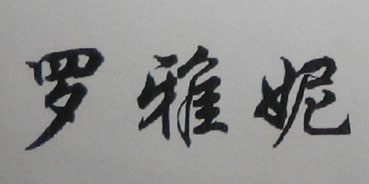 罗雅妮